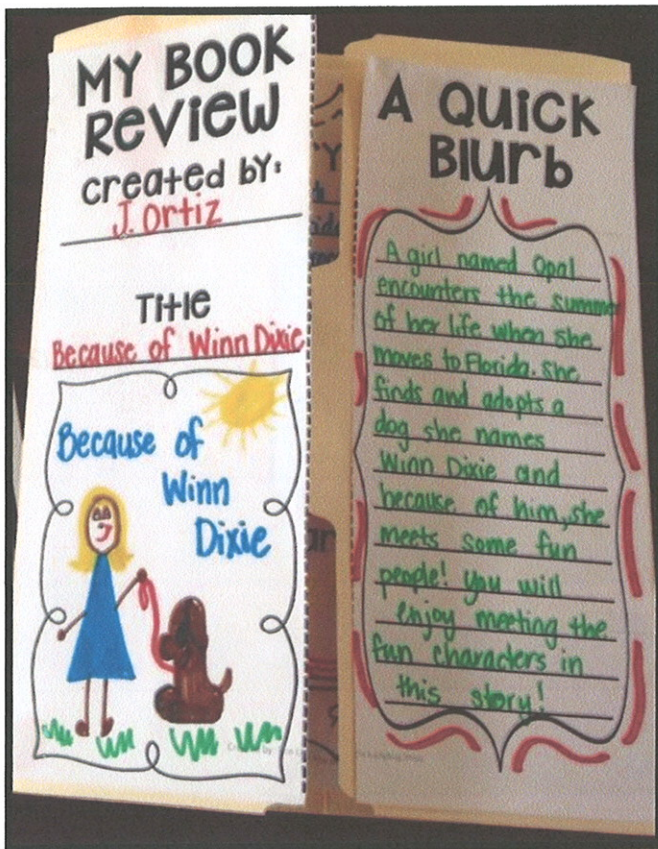 MY BOOK
REVIEW
created BY:
J. Ortiz
Title
Because of Winn Dixie
Because of
Winn
Dixie
A QUICK
BLURB
A girl named Opal
encounters the summer
of her life when she
moves to Florida. She
finds and adopts a
dog she names
Winn Dixie and
because of him, she
meets some fun
people! You will
enjoy meeting the
fun characters in
this story!